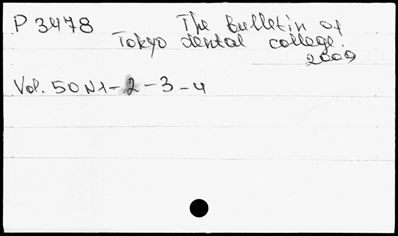 P 3478 The Bulletin of
Tokyo dental college.
2009
Vol. 50 N1-2-3-4